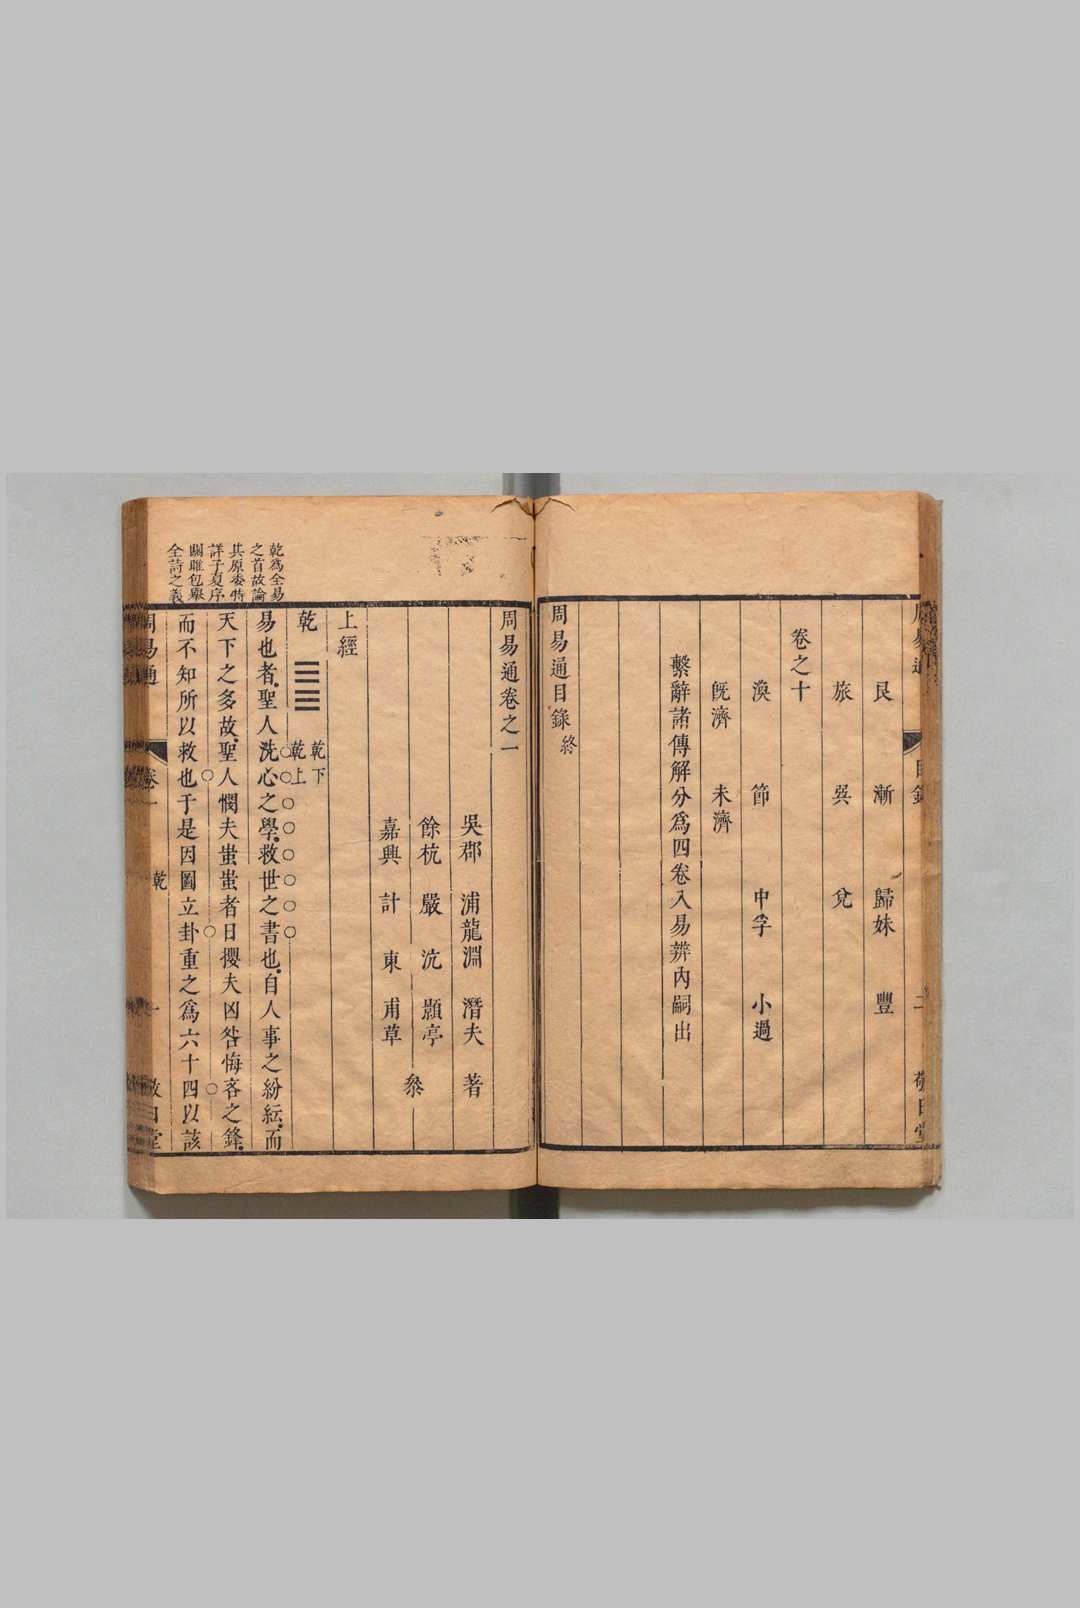 艮 漸 歸妹 豐
旅 巽 兌
卷之十
渙 節 中孚 小過
旣濟 未濟
繫辭諸傳解分爲四卷入易辨內嗣出
周易通目錄終
周易通卷之一
吳郡 浦龍淵 潛夫 著
餘杭 嚴沆 顥亭
嘉興 計東 甫草 叅
上經
乾 乾下乾上
易也者聖人洗心之學救世之書也自人事之紛紜而
天下之多故聖人憫夫蚩蚩者日攖夫凶咎悔吝之鋒
而不知所以救也于是因圖立卦重之爲六十四以該
乾爲全易
之首故論
其原委特
詳子夏序
關雎包舉
全詩之義
周易通 卷一 乾 一 敬日堂